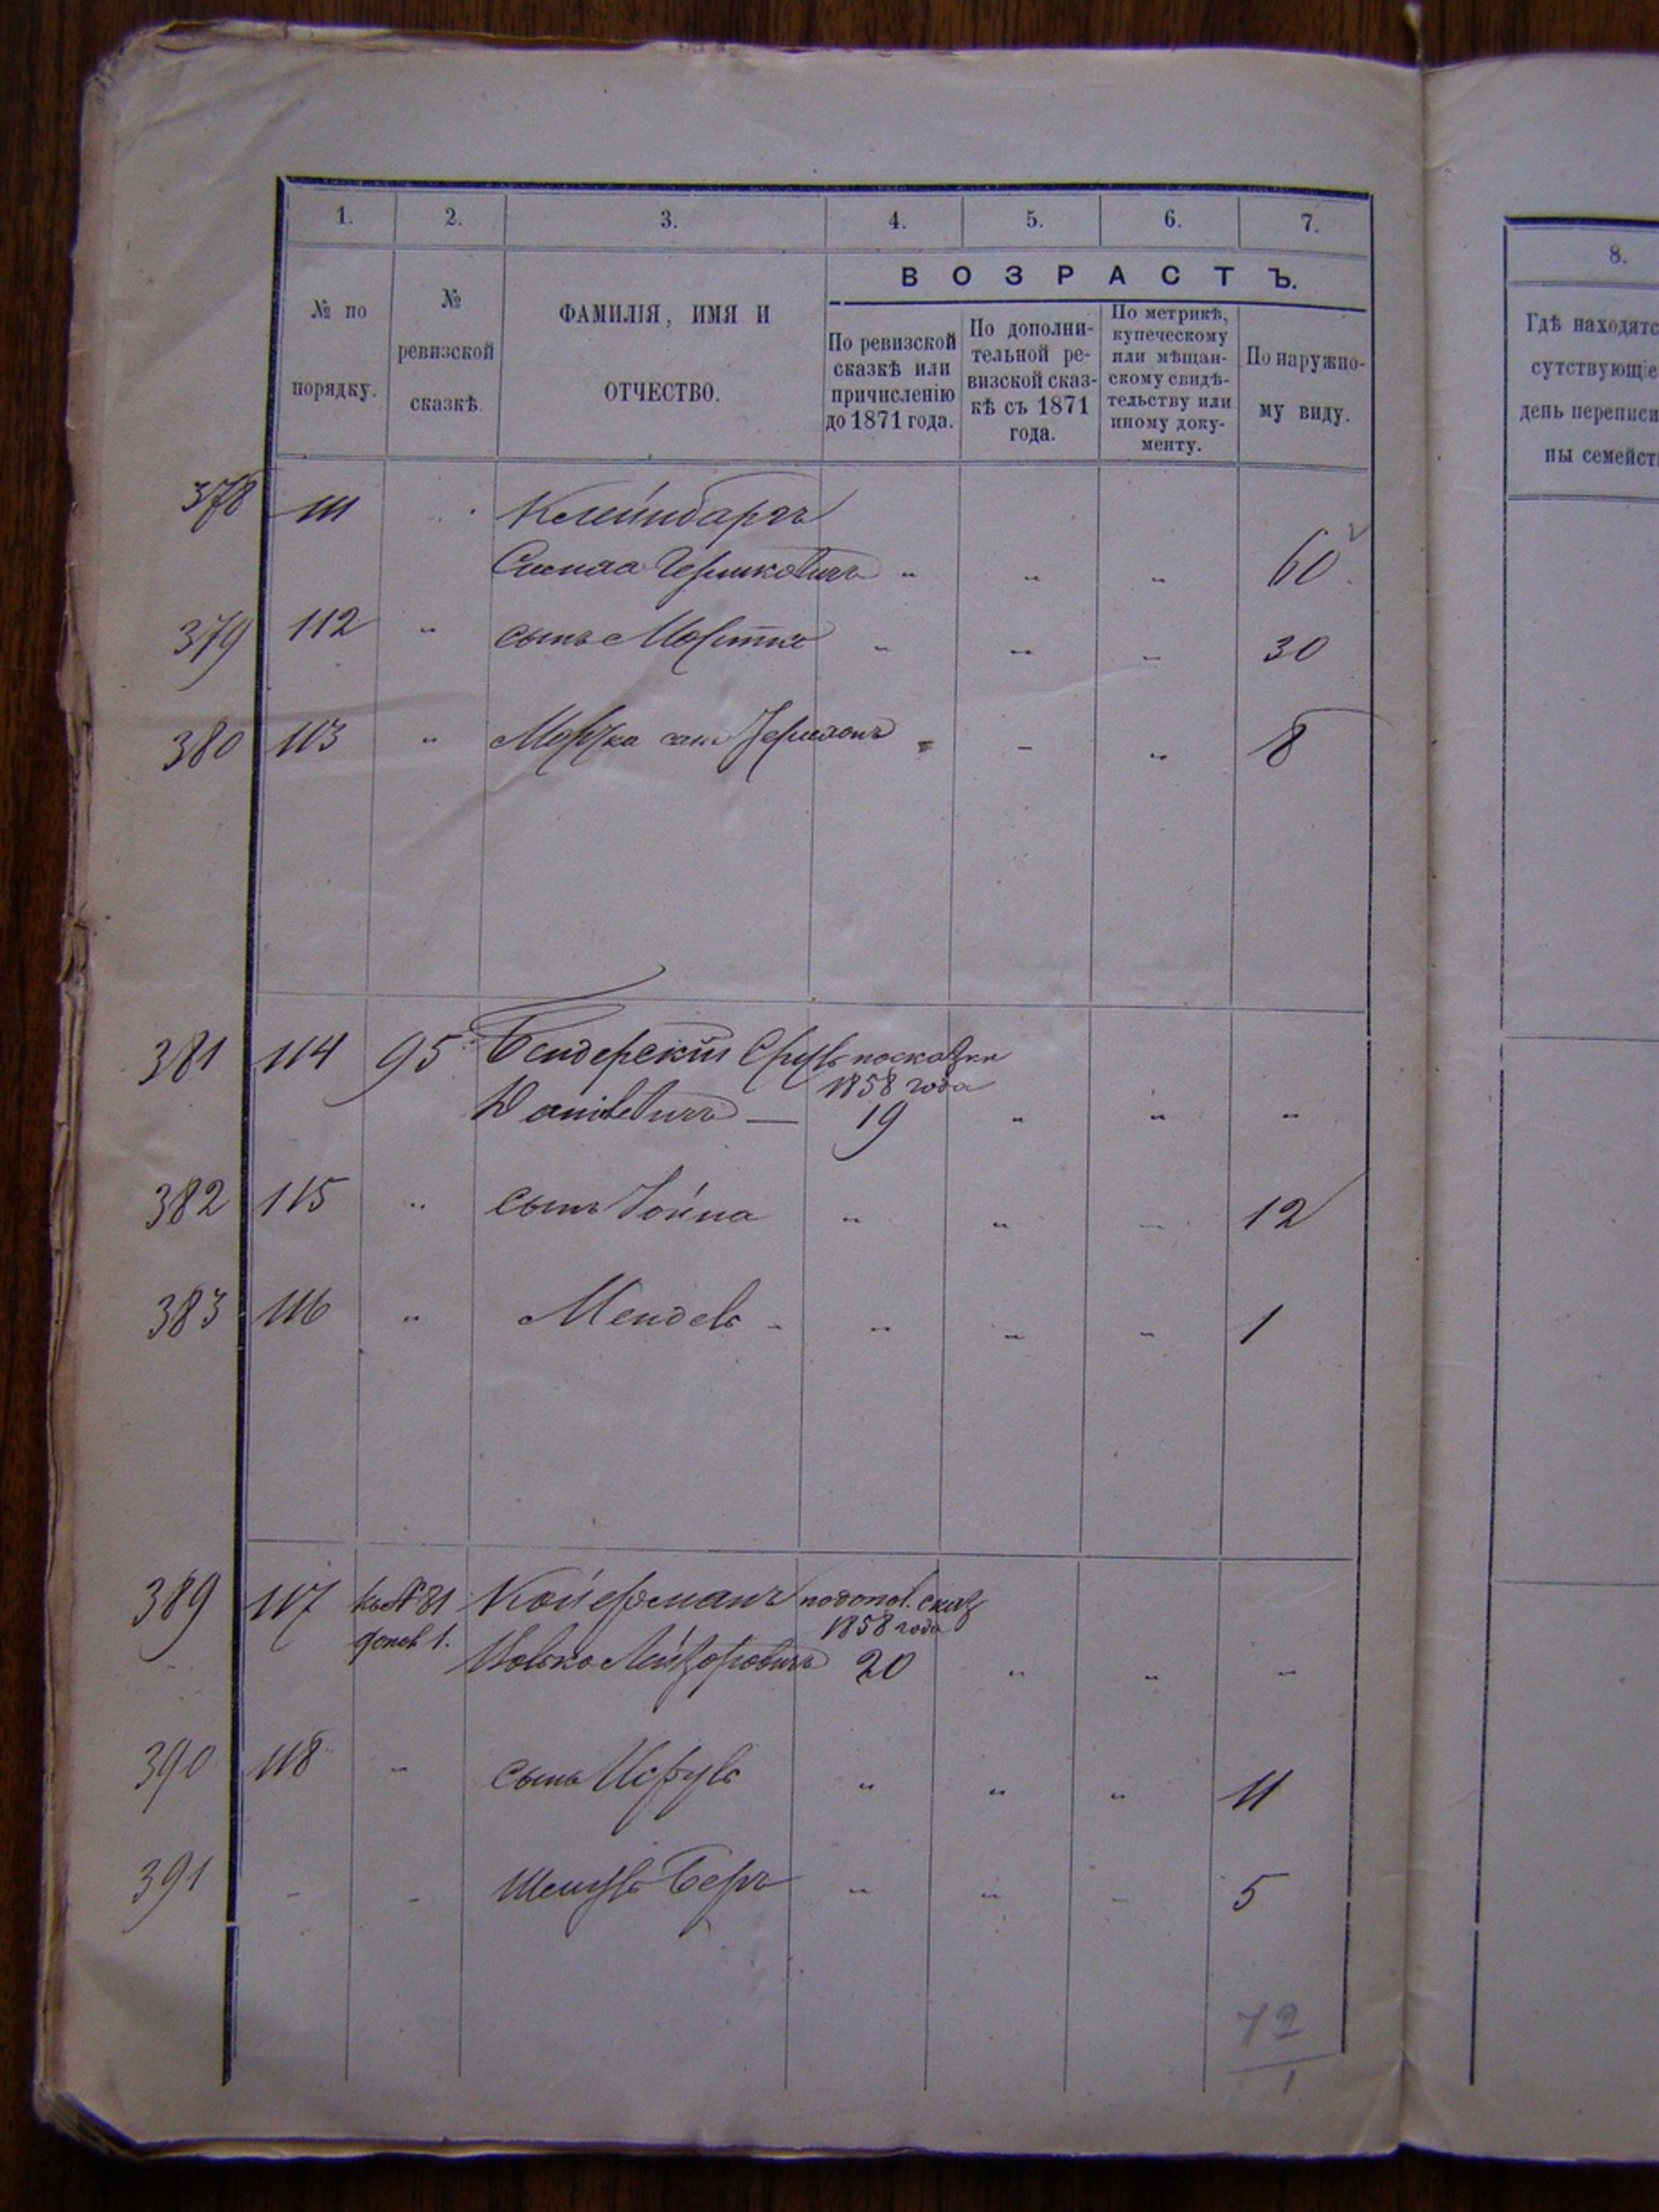 1. 2. 3. 4. 5. 6. 7.
№ по порядку.
№ ревизской сказкѣ.
ФАМИЛІЯ, ИМЯ И ОТЧЕСТВО.
ВОЗРАСТЪ.
По ревизской сказкѣ или причисленію до 1871 года.
По дополни-тельной ре-визской сказ-кѣ съ 1871 года.
По метрикѣ, купеческому или мѣщан-скому свидѣ-тельству или иному доку-менту.
По наружно-му виду.
378 111 Клейнбаргъ
Гершковичъ „ „ „ 60
379 112 „ сынъ Мортко „ „ „ 30
380 113 „ сынъ „ – „ 8
381 114 95 Бендерскій Сруль по сказки
1858 года
Daniлевичъ — 19 „ „ „
382 115 „ сынъ Іойна „ „ „ 12
383 116 „ Мендель „ „ „ 1
389 117 № 81 Койферманъ по допол. сказ
1858 года
допол 1. Иосько Лейзоровичъ 20 „ „ „
390 118 „ сынъ Исруль „ „ „ 11
391 – – Шмуль Беръ „ „ – 5
72
1
8.
Гдѣ находятс
сутствующіе
день переписи
ны семейст